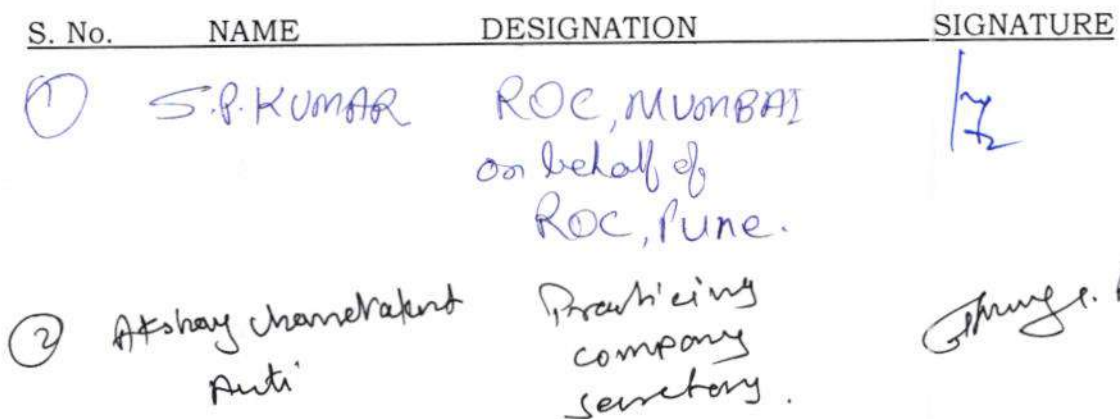 S. No. NAME DESIGNATION SIGNATURE
① S.P. KUMAR ROC, MUMBAI
on behalf of
ROC, Pune.
② Akshay Practicing
company
secretary.